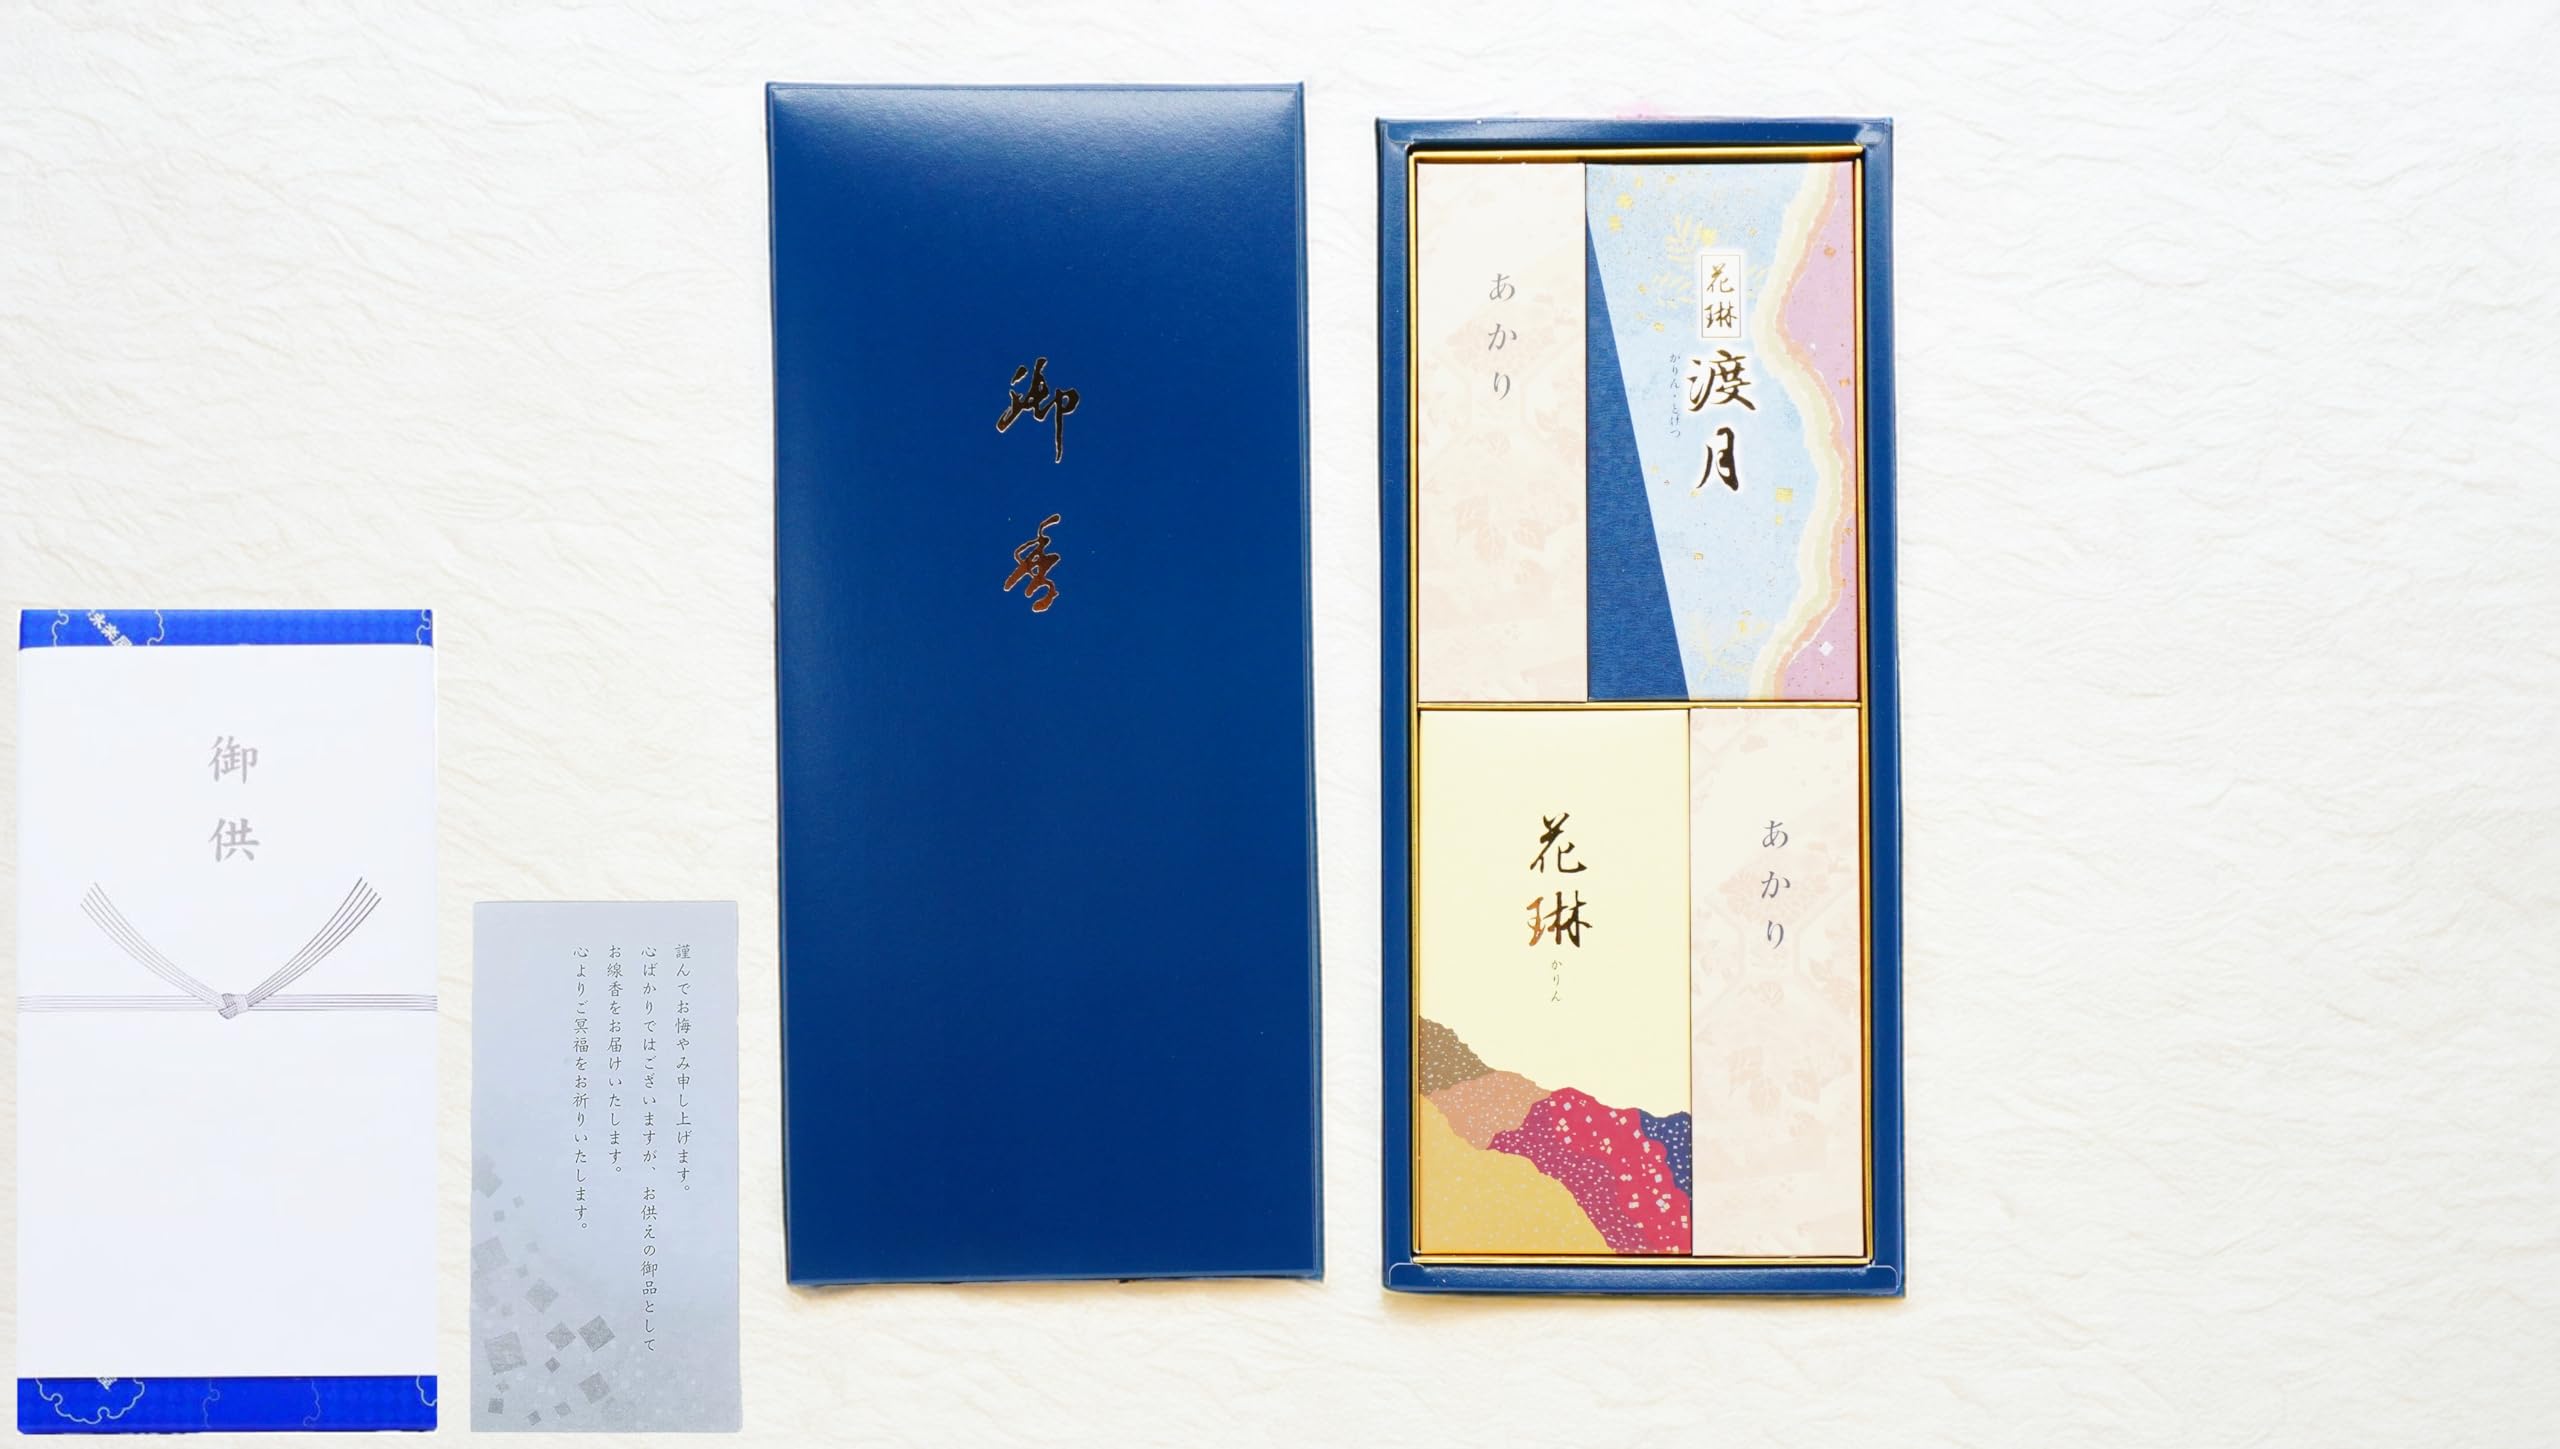 御供
謹んでお悔やみ申し上げます。
心ばかりではございますが、お供えの御品として
お線香をお届けいたします。
心よりご冥福をお祈りいたします。
御香
あかり
花琳
渡月
かりん・とげつ
花琳
かりん
あかり